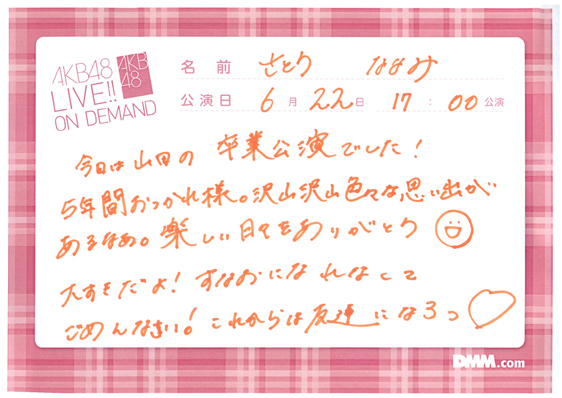 AKB48
LIVE!!
ON DEMAND
AKB
48
名前 さとう ななみ
公演日 6月22日 17:00公演
今日は山田の卒業公演でした!
5年間おつかれ様。沢山沢山色々な思い出が
あるなぁ。楽しい日々をありがとう
大すきだよ! すなおになれなくて
ごめんなさい! これからは友達になろっ♡
DMM.com